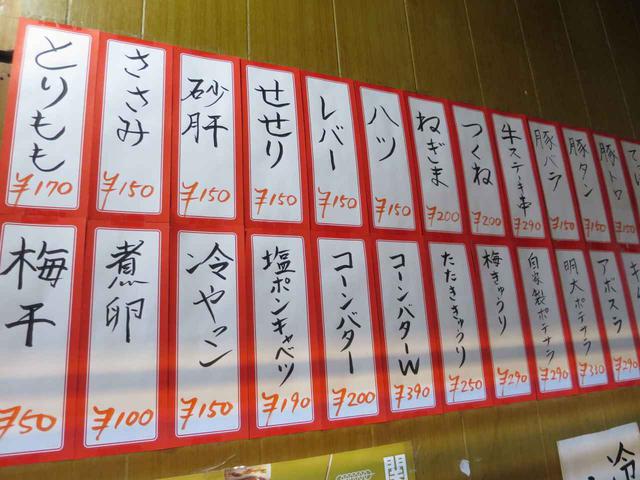 とりもも
¥170
ささみ
¥150
砂肝
¥150
せせり
¥150
レバー
¥150
ハツ
¥150
ねぎま
¥200
つくね
¥200
牛ステーキ串
¥290
豚バラ
¥150
豚タン
¥150
豚トロ
¥150
梅干
¥50
煮卵
¥100
冷ヤッコ
¥150
塩ポンキャベツ
¥190
コーンバター
¥200
コーンバターW
¥390
たたききゅうり
¥250
梅きゅうり
¥290
自家製ポテサラ
¥290
明太ポテサラ
¥330
アボスラ
¥290
関
冷